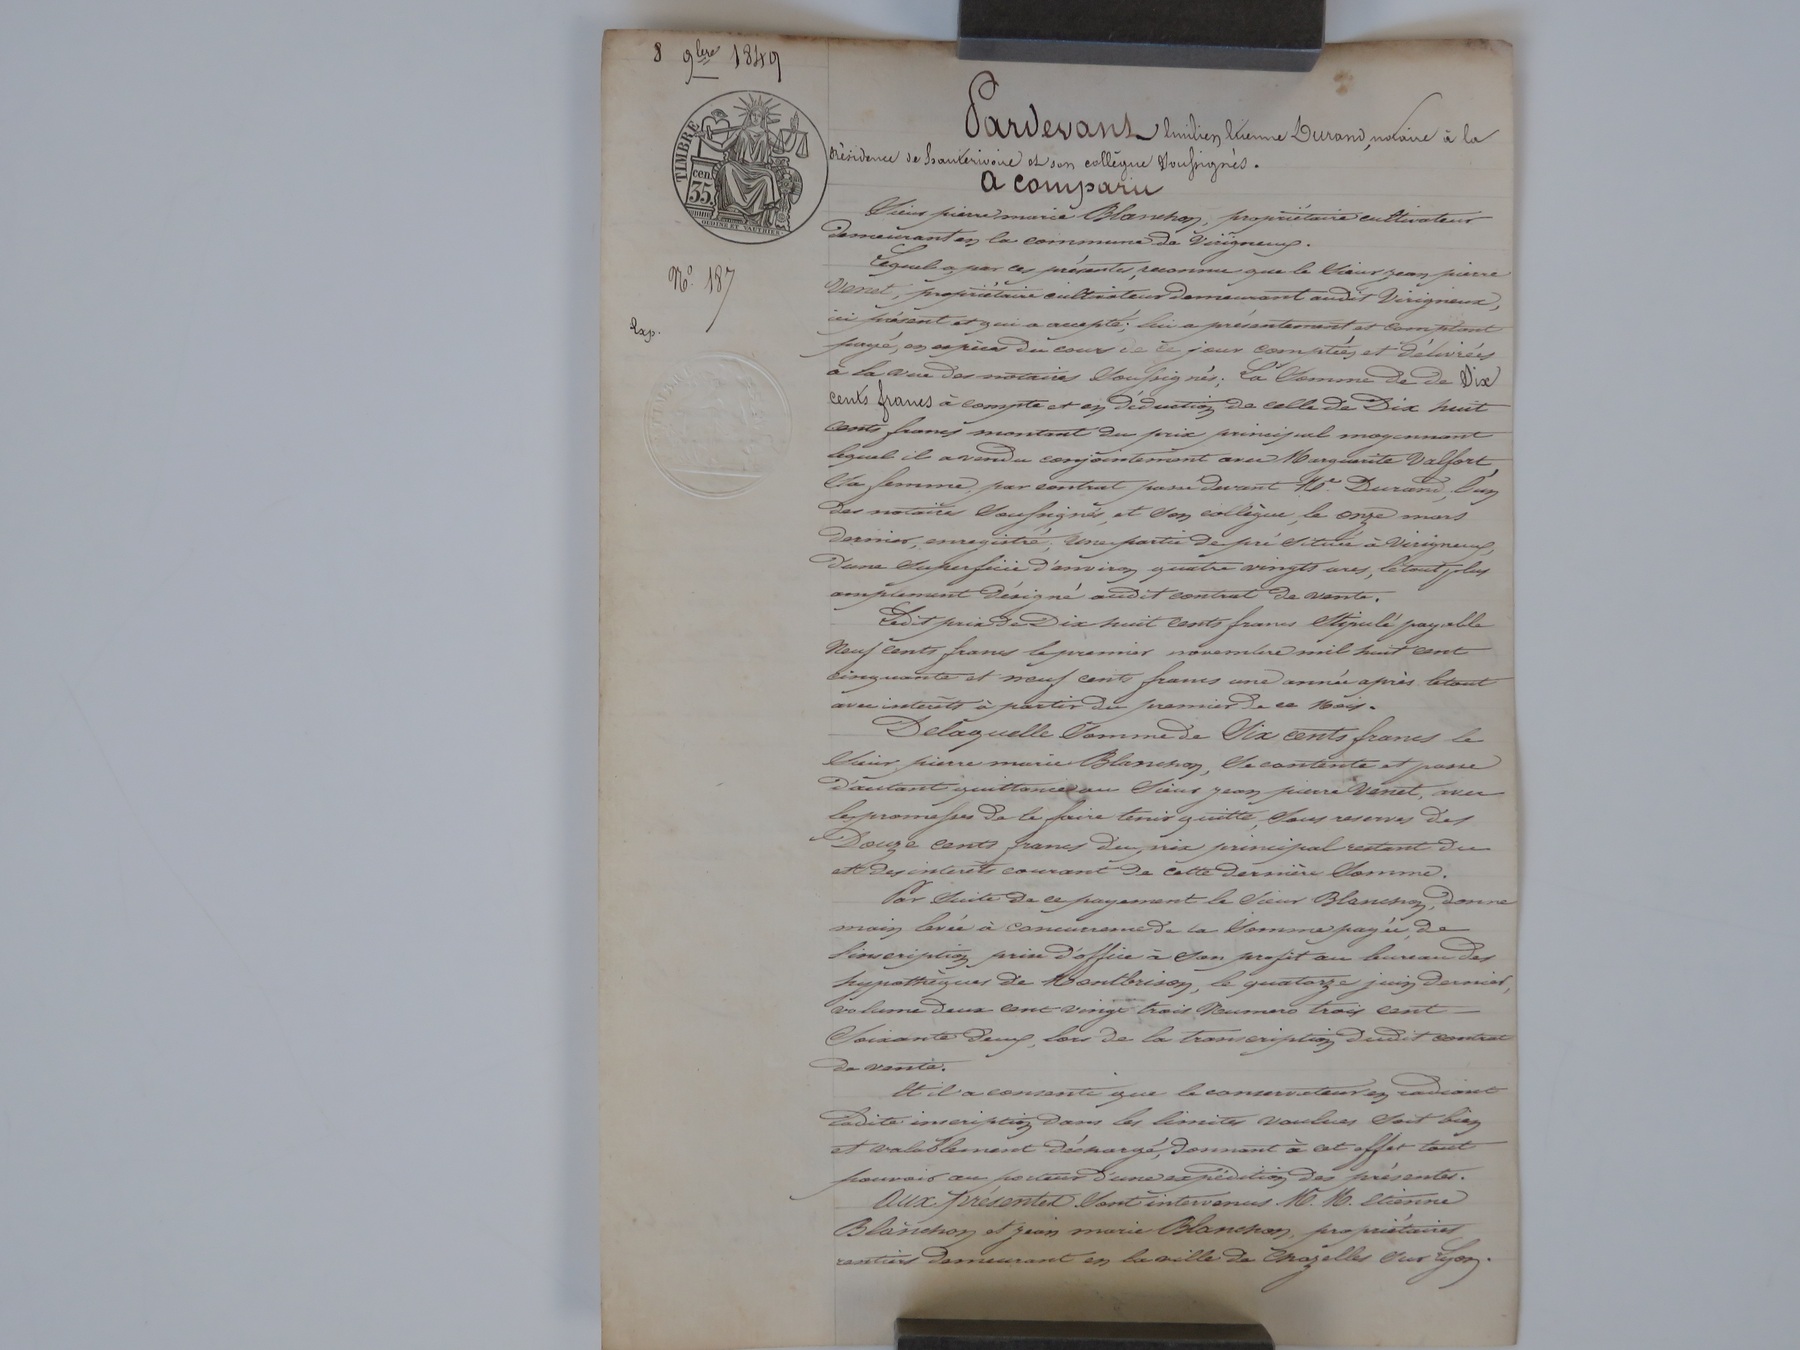 8 9bre 1849
TIMBRE
cen.
35
N.o 187
Exp.
Pardevant Emilien Etienne Durand, notaire à la
résidence de hauterivoire et son collègue soussignés.
a comparu
Sieur pierre marie Blanchon, propriétaire cultivateur
demeurant en la commune de Virigneux.
Lequel a par ces présentes, reconnu que le sieur jean pierre
Venet, propriétaire cultivateur demeurant audit Virigneux,
ici présent et qui a accepté; lui a présentement et comptant
payé, en espèces du cours de ce jour comptées et délivrées
à la vue des notaires soussignés; La somme de de Six
cents francs à compte et en déduction de celle de Dix huit
cents francs montant du prix principal moyennant
lequel il a vendu conjointement avec Marguerite Valfort,
sa femme, par contrat passé devant Me. Durand, l'un
des notaires soussignés, et son collègue, le onze mars
dernier, enregistré; une partie de pré située à Virigneux,
d'une superficie d'environ quatre vingts ares, le tout plus
amplement désigné audit contrat de vente.
Ledit prix de Dix huit cents francs stipulé payable
Neuf cents francs le premier novembre mil huit cent
cinquante et neuf cents francs une année après le tout
avec intérêts à partir du premier de ce mois.
De laquelle somme de Six cents francs le
sieur pierre marie Blanchon, se contente et passe
d'autant quittance au sieur jean pierre Venet, avec
les promesses de le faire tenir quitte, sous reserves des
Douze cents francs du prix principal restant du
et des intérêts courant de cette dernière somme.
Par suite de ce payement le sieur Blanchon, donne
main levée à concurrence de la somme payée, de
l'inscription prise d'office à son profit au bureau des
hypothèques de Montbrison, le quatorze juin dernier,
volume deux cent vingt trois Numero trois cent
soixante deux, lors de la transcription dudit contrat
de vente.
Et il a consenti que le conservateur en radiant
ladite inscription dans les limites voulues soit bien
et valablement déchargé, donnant à cet effet tout
pouvoir au porteur d'une expédition des présentes.
Aux présentes sont intervenus M. M. Etienne
Blanchon et jean marie Blanchon, propriétaires
rentiers demeurant en la ville de Chazelles sur Lyon.